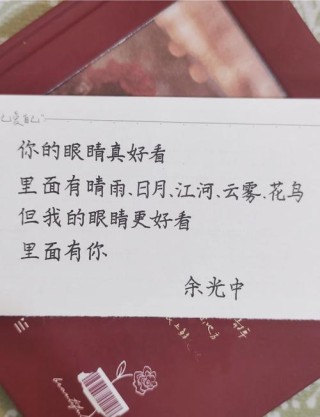 你的眼睛真好看
里面有晴雨、日月、江河、云雾、花鸟
但我的眼睛更好看
里面有你
余光中